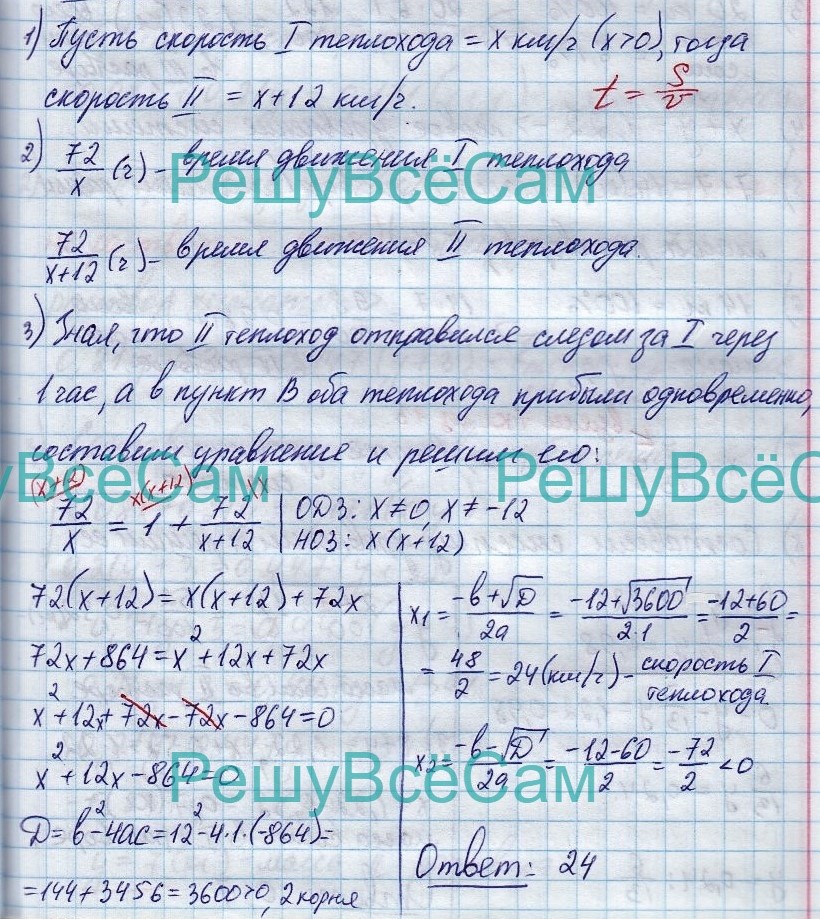 1) Пусть скорость I теплохода = x км/ч (x>0), тогда
скорость II = x+12 км/ч.
t = S/v
2) 72/x (ч) - время движения I теплохода
РешуВсёСам
72/(x+12) (ч) - время движения II теплохода.
3) Зная, что II теплоход отправился следом за I через
1 час, а в пункт В оба теплохода прибыли одновременно,
составим уравнение и решим его:
уВсёСам
РешуВсёС
(x+12) x(x+12) \x
72/x = 1 + 72/(x+12) | ОДЗ: x≠0, x≠-12
НОЗ: x(x+12)
72(x+12) = x(x+12) + 72x
72x+864 = x²+12x+72x
x²+12x+72x-72x-864=0
x²+12x-864=0
РешуВсёСам
D = b²-4ac = 12²-4·1·(-864)=
=144+3456=3600>0, 2 корня
x1 = (-b+√D)/2a = (-12+√3600)/(2·1) = (-12+60)/2 =
= 48/2 = 24 (км/ч) - скорость I
теплохода
x2 = (-b-√D)/2a = (-12-60)/2 = -72/2 <0
Ответ: 24